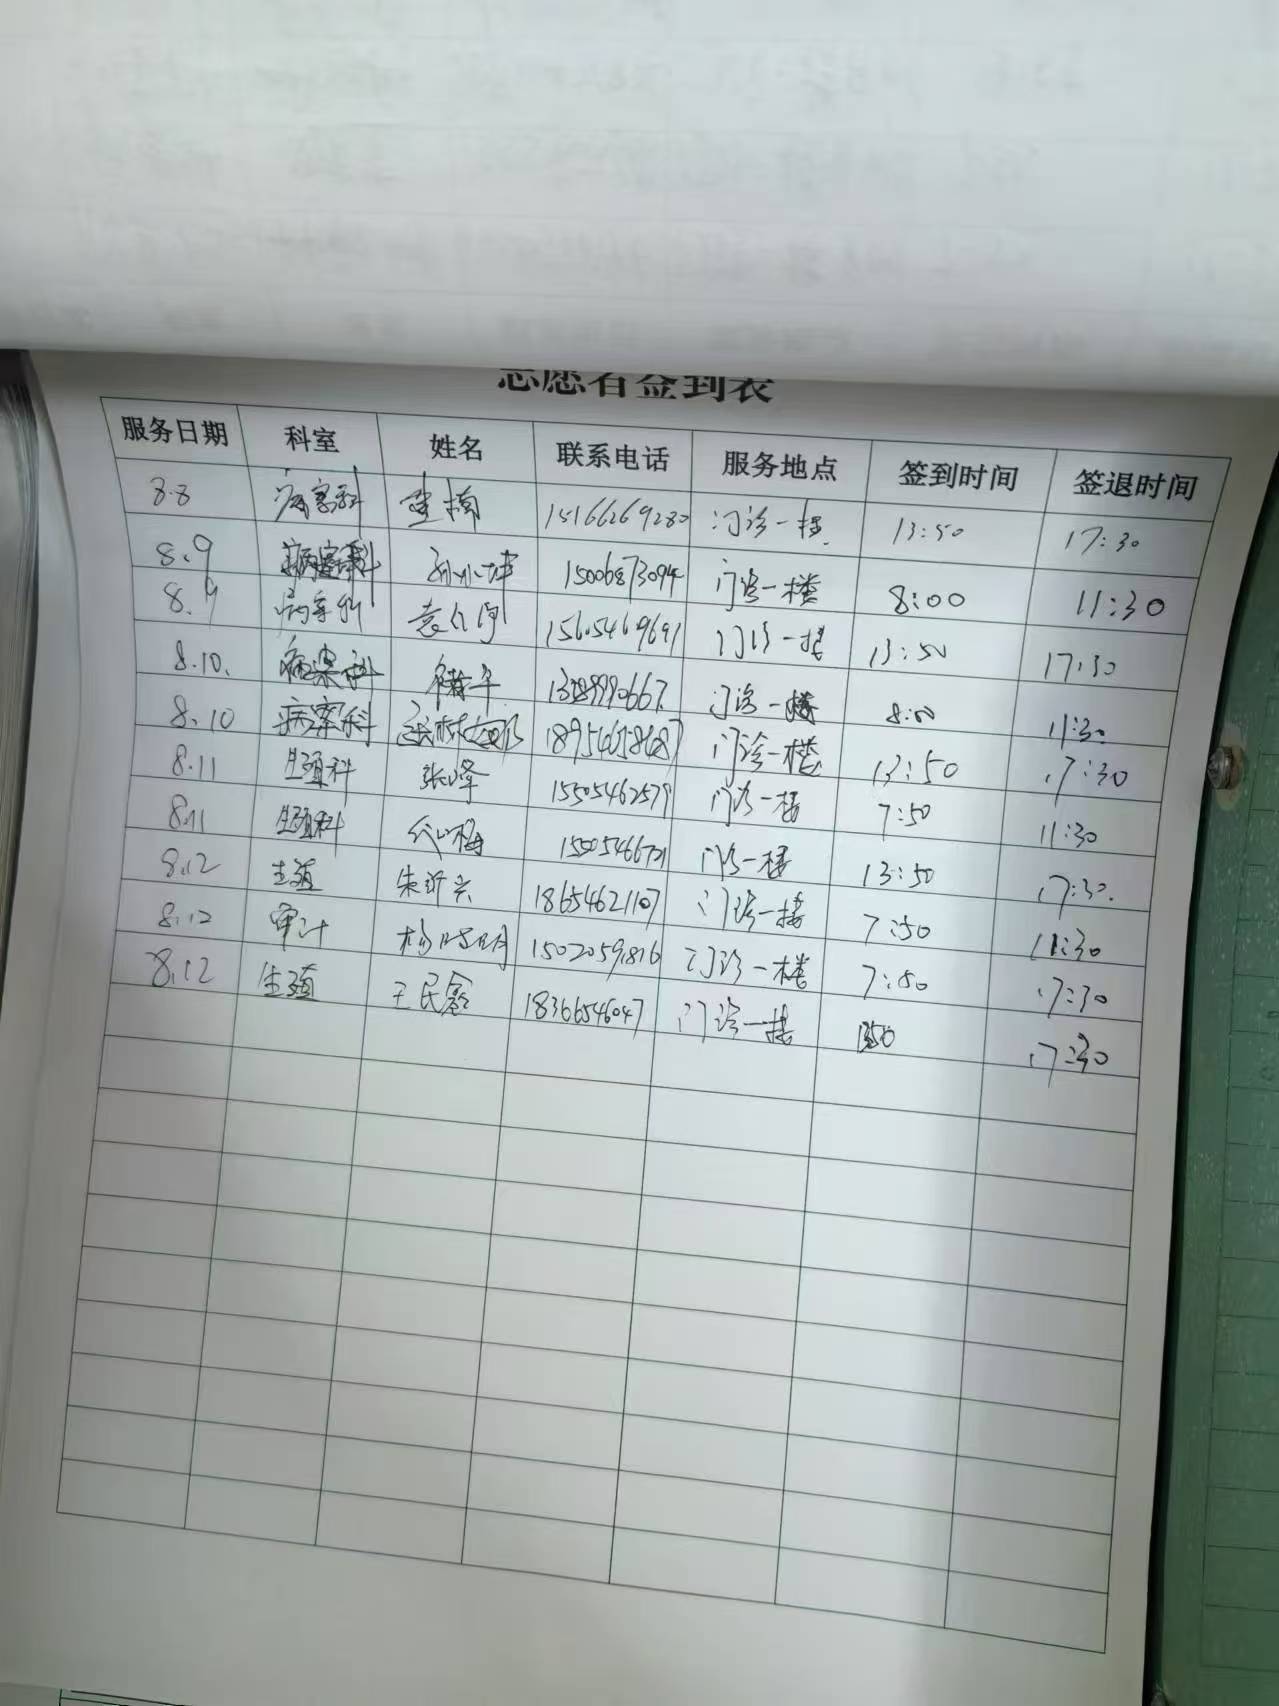 志愿者签到表
服务日期 科室 姓名 联系电话 服务地点 签到时间 签退时间
8.8 病案科 楠 15166269280 门诊一楼 13:50 17:30
8.9 病案科 15006873094 门诊一楼 8:00 11:30
8.9 病案科 15605469691 门诊一楼 13:50 17:30
8.10. 病案科 门诊一楼 8:00 11:30
8.10 病案科 门诊一楼 13:50 17:30
8.11 生殖科 张峰 15505462579 门诊一楼 7:50 11:30
8.11 生殖科 门诊一楼 13:50 17:30.
8.12 生殖 朱沂兴 18654621107 门诊一楼 7:50 11:30
8.12 审计 门诊一楼 7:50 17:30
8.12 生殖 王民鑫 18366546047 门诊一楼 1350 17:30